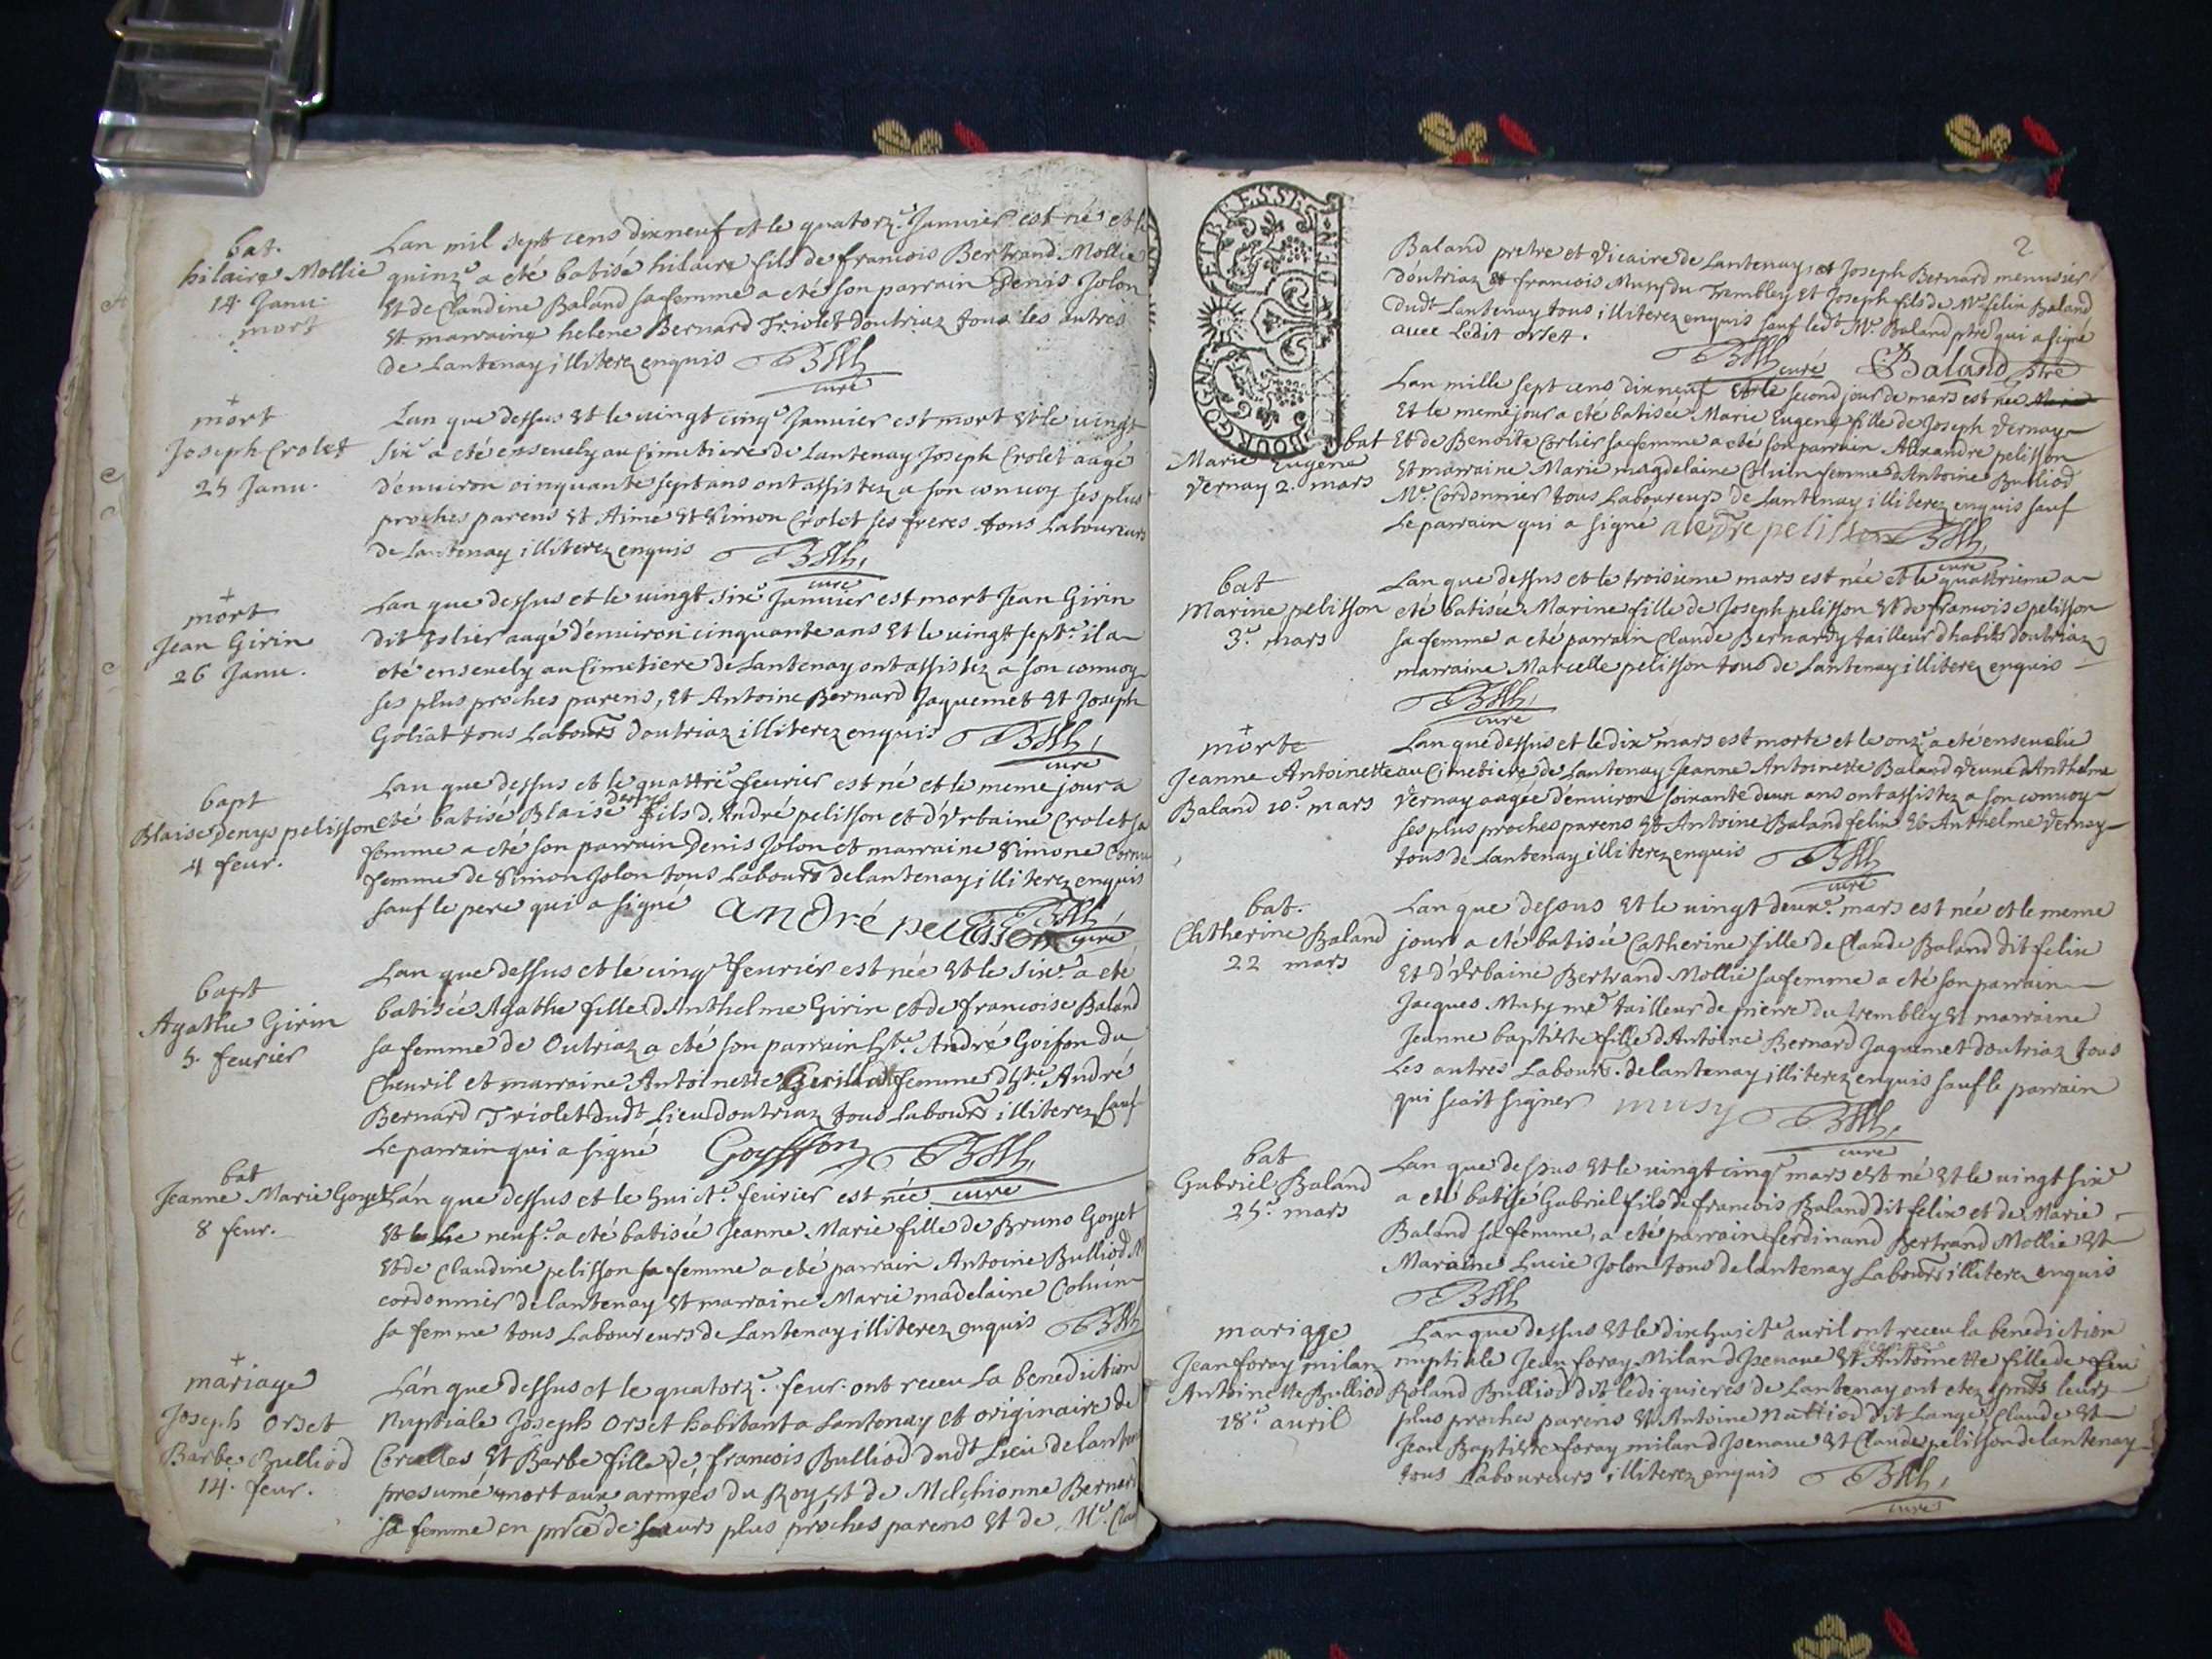 bat.
hilaire Mollie
14. Janu.
mort
Lan mil sept cens dixneuf et le quatorz.e Januier est né et le
quinz.e a eté batisé hilaire fils de francois Bertrand Mollie
Et de Claudine Baland sa femme a eté son parrain Denis Jolon
Et marraine helene Bernard Triolet doutriaz tous les autres
de Lantenay illiterez enquis
curé
mort
Joseph Crolet
25 Janu.
Lan que dessus Et le uingt cinq.e Januier est mort Et le uingt
six.e a eté enseuely au Cimetiere de Lantenay Joseph Crolet aagé
d'enuiron cinquante sept ans ont assistez a son conuoy ses plus
proches parens Et Aimé Et Simon Crolet ses freres tous Laboureurs
de Lantenay illiterez enquis
curé
mort
Jean Girin
26 Janu.
Lan que dessus et le uingt six.e Januier est mort Jean Girin
dit aagé d'enuiron cinquante ans Et le uingt sept.e il a
eté enseuely au Cimetiere de Lantenay ont assistez a son conuoy
ses plus proches parens, Et Antoine Bernard Jaquemet Et Joseph
Goliat tous Labours doutriaz illiterez enquis
curé
bapt
Blaise denys pelisson
4 feur.
Lan que dessus et le quattrie feurier est né et le meme jour a
eté batisé Blaise denys fils d'André pelisson et d'Vrbaine Crolet sa
femme a eté son parrain Denis Jolon et marraine Simone
femme de Simon Jolon tous Labours de lantenay illiterez enquis
sauf le pere qui a signé andré pelisson
curé
bapt
Agathe Girin
5. feurier
Lan que dessus et le cinq.e feurier est née Et le six.e a eté
batisée Agathe fille d'Anthelme Girin et de francoise Baland
sa femme de Outriaz a eté son parrain André Goifon du
Cheuril et marraine Antoinette femme d' André
Bernard Triolet dudt Lieu doutriaz tous Labours illiterez sauf
Le parrain qui a signé Goyffon
curé
bat
Jeanne Marie Goyet
8 feur.
Lan que dessus et le huict.e feurier est née
Et le neuf.e a eté batisée Jeanne Marie fille de Bruno Goyet
Et de Claudine pelisson sa femme a eté parrain Antoine Bulliod M
cordonnier de lantenay Et marraine Marie madelaine Coluin
sa femme tous Laboureurs de Lantenay illiterez enquis
mariage
Joseph Orset
Barbe Bulliod
14. feur.
Lan que dessus et le quatorz.e feur. ont receu La benediction
Nuptiale Joseph Orset habitant a Lantenay et originaire de
Corcelles Et Barbe fille de francois Bulliod dudt Lieu de lantenay
presumé mort aux armées du Roy, Et de Melchionne Bernard
sa femme en de leurs plus proches parens Et de Mr.
2
BOURGOGNE ET BRESSE
Baland pretre et Vicaire de Lantenay, et Joseph Bernard menusier
doutriaz et francois Musy du Trembley Et Joseph fils de Mr felix Baland
dudt Lantenay tous illiterez enquis sauf ledt Mr. Baland ptre qui a signé
auec Ledit orset.
curé Baland ptre
bat
Marie Eugene
Vernay 2. mars
Lan mille sept cens dixneuf Et le second jour de mars est née Marie
Et le meme jour a eté batisée Marie Eugene fille de Joseph Vernay
Et de Benoite Corlier sa femme a eté son parrain Alexandre pelisson
Et marraine Marie magdelaine Coluin femme d'Antoine Bulliod
Mr. Cordonnier tous Laboureurs de Lantenay illiterez enquis sauf
Le parrain qui a signé pelisson
curé
bat
Marine pelisson
3.e mars
Lan que dessus et le troisieme mars est née et le quattrieme a
eté batisée Marine fille de Joseph pelisson Et de francoise pelisson
sa femme a eté parrain Claude Bernardy tailleur d'habits doutriaz
marraine Marcelle pelisson tous de Lantenay illiterez enquis
curé
morte
Jeanne Antoinette
Baland 10.e mars
Lan que dessus et le dix.e mars est morte et le onz.e a eté enseuelie
au Cimetiere de Lantenay Jeanne Antoinette Baland Veuue d'Anthelme
Vernay aagée d'enuiron soixante deux ans ont assistez a son conuoy
ses plus proches parens Et Antoine Baland felix Et Anthelme Vernay
tous de Lantenay illiterez enquis
curé
bat.
Catherine Baland
22 mars
Lan que dessus Et le uingt deux.e mars est née et le meme
jour a eté batisée Catherine fille de Claude Baland dit felix
Et d'Vrbaine Bertrand Mollie sa femme a eté son parrain
Jacques Musy me tailleur de pierre du trembley Et marraine
Jeanne baptiste fille d'Antoine Bernard Jaquemet doutriaz tous
Les autres Labours. de lantenay illiterez enquis sauf le parrain
qui scait signer musy
curé
bat
Gabriel Baland
25.e mars
Lan que dessus Et le uingt cinq.e mars est né Et le uingt six.e
a eté batisé Gabriel fils de francois Baland dit felix et de Marie
Baland sa femme, a eté parrain ferdinand Bertrand Mollie Et
Maraine Lucie Jolon tous de lantenay Labours illiterez enquis
mariage
Jean foray milan
Antoinette Bulliod
18.e auril
Lan que dessus Et le dixhuict.e auril ont receu la benediction
nuptiale Jean foray Milan d'Jzenaue Et Antoinette fille de feu
Roland Bulliod dit lediguieres de Lantenay ont etez leurs
plus proches parens Et Antoine dit Lange Claude Et
Jean Baptiste foray milan d'Jzenaue Et Claude pelisson de lantenay
tous Laboureurs illiterez enquis
curé